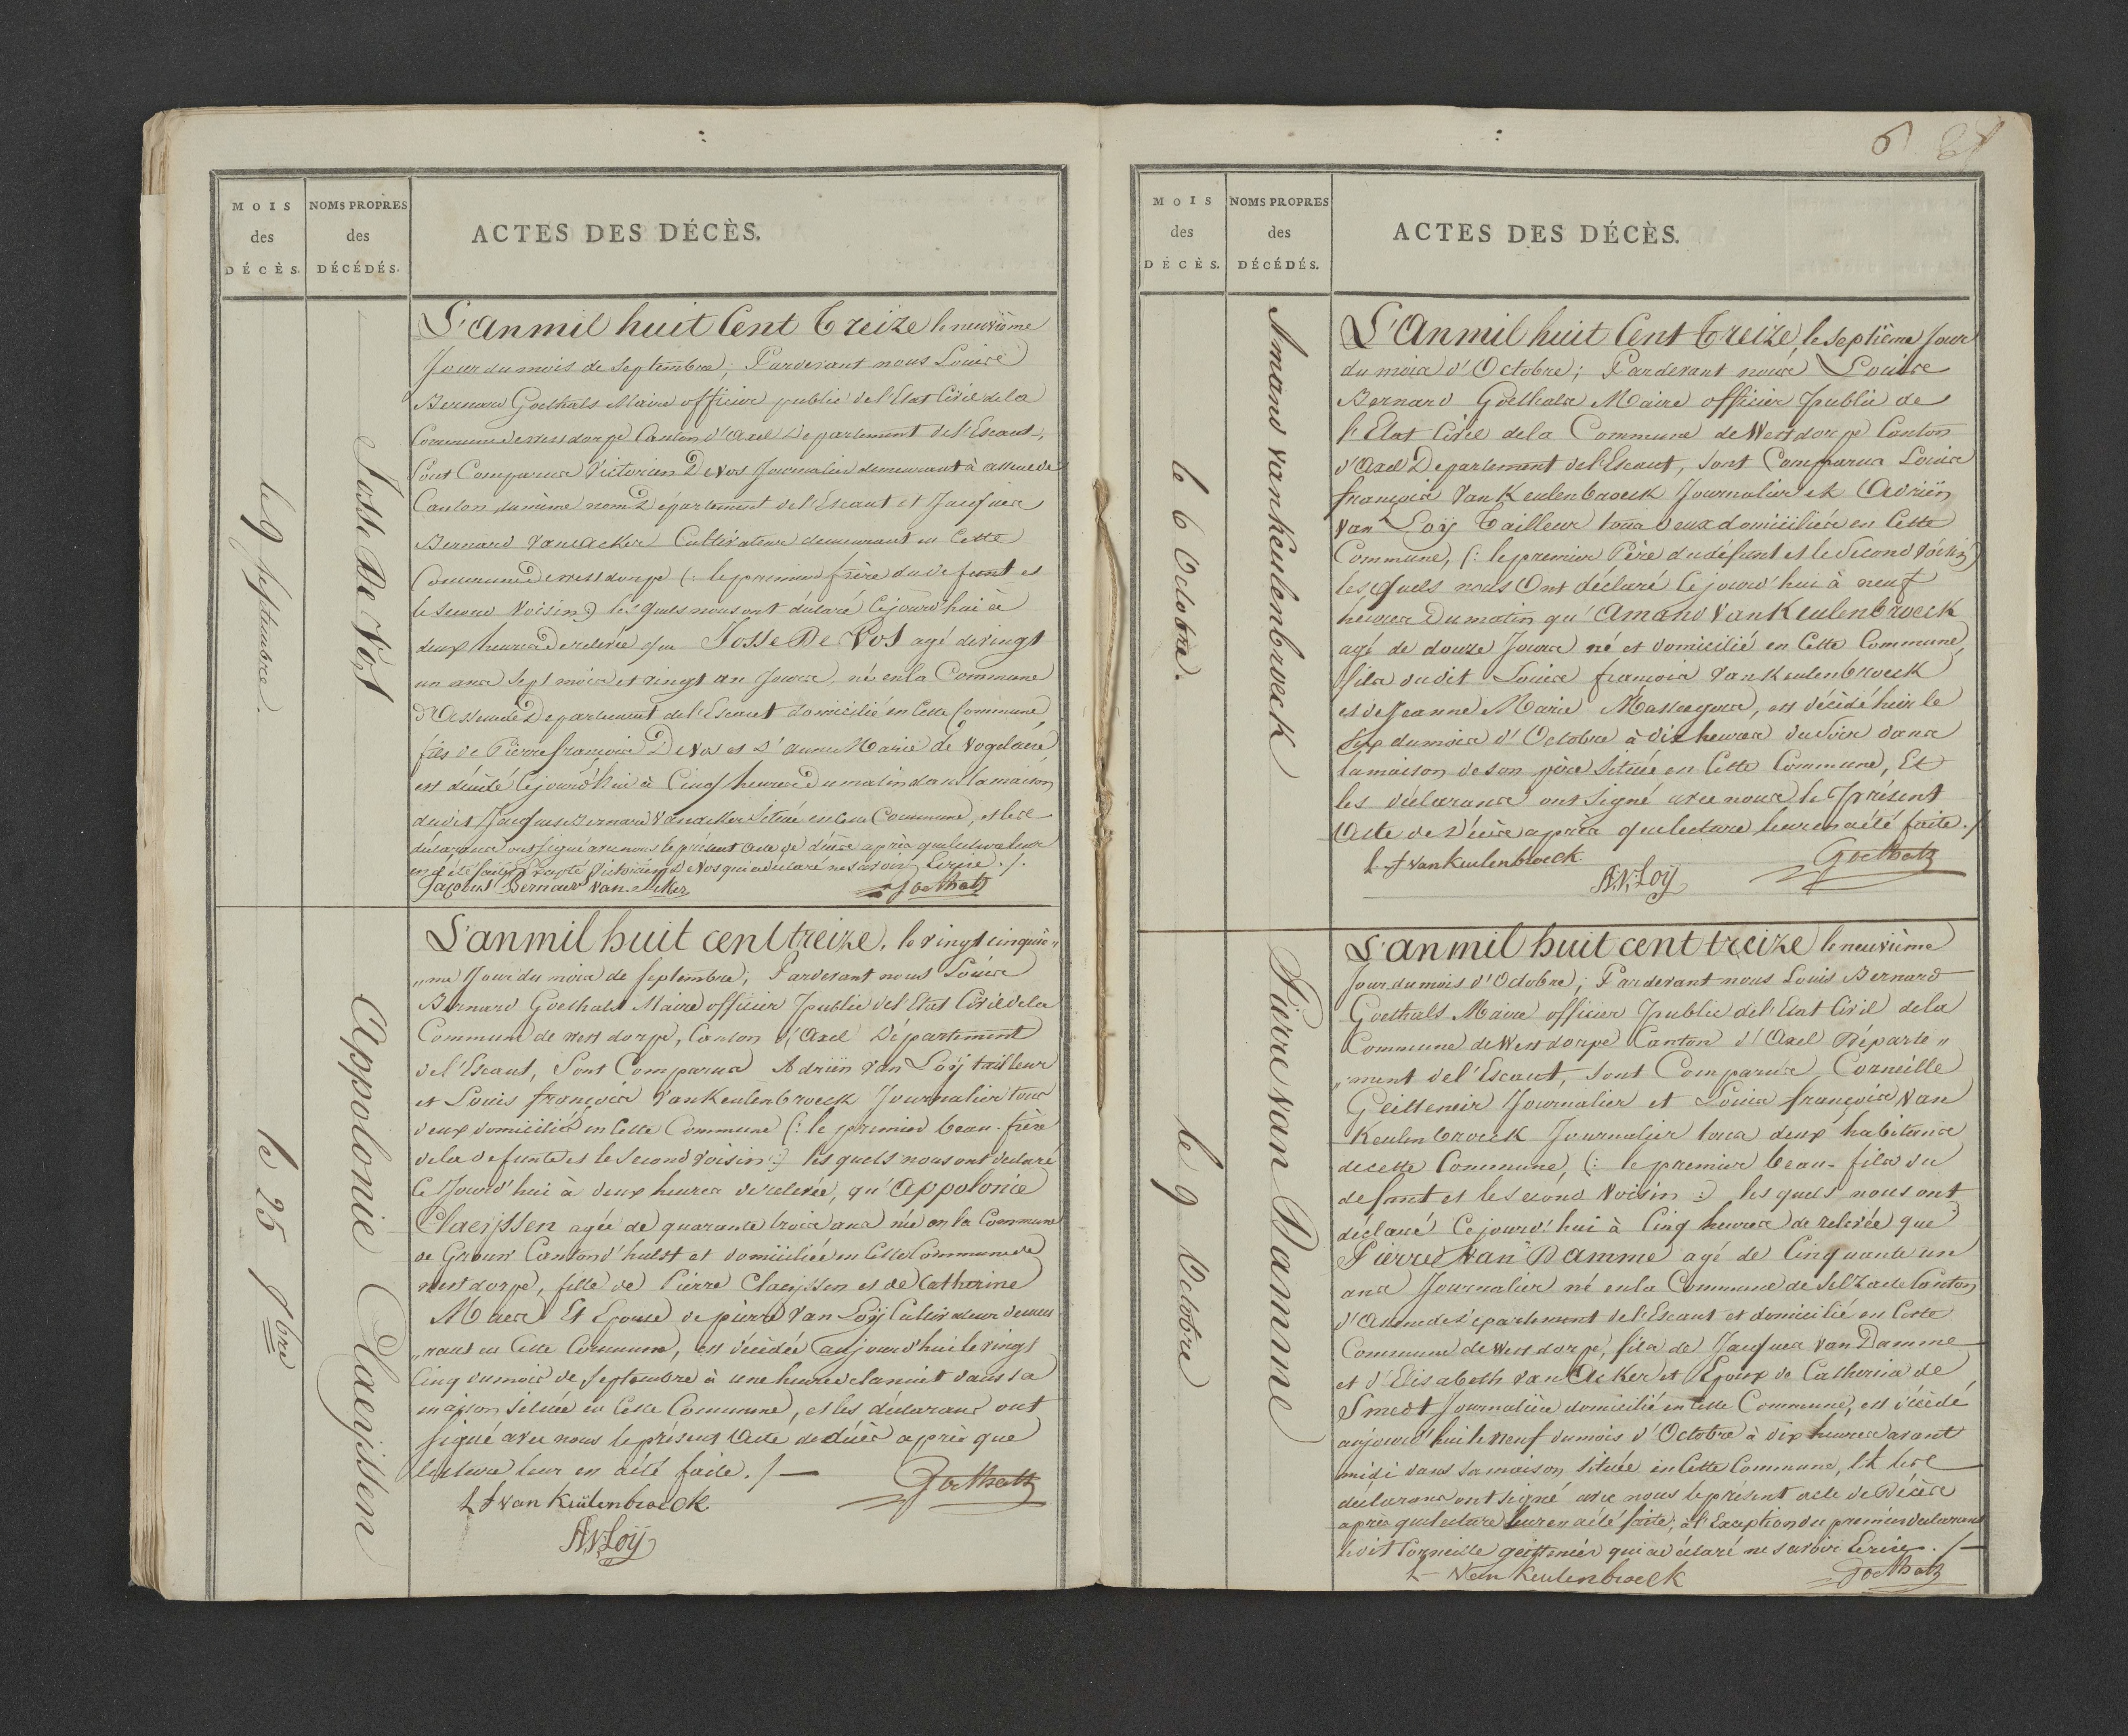 MOIS
des
DÉCÈS.
NOMS PROPRES
des
DÉCÉDÉS.
ACTES DES DÉCÈS.
le 9 septembre.
Josse De Vos
L'an mil huit Cent Treize le neuvième
Jour du mois de Septembre; Pardevant nous Louis
Bernard Goethals Maire officier public de l'Etat Civil de la
Commune de Westdorpe Canton d'Axel Departement de l'Escaut,
Sont Comparus Victorien De Vos Journalier demeurant à Assenede
Canton du même nom Département de l'Escaut et Jacques
Bernard Vanacker Cultivateur demeurant en Cette
Commune de Westdorpe (: le premier frère du defunt et
le second Voisin :) lesquels nous ont déclaré Cejourd'hui à
deux heures de relevée que Josse De Vos agé de vingt
un ans sept mois et vingt un Jours, né en la Commune
d'Assenede Departement de l'Escaut domicilié en Cette Commune,
fils de Pierre françois De Vos et d'anne Marie de Vogelaere
est décédé Cejourd'hui à Cinq heures du matin dans la maison
dudit Jacques Bernard Vanacker Située en Cette Commune, et les
déclarans ont signé avec nous le présent Acte de décès après que lecture leur
en a été faite Excepté Victorien De Vos qui a déclaré ne savoir Ecrire ./.
Jacobus Bernard Van Acker
Goethals
le 25 7bre
Appolonie Claeijssen
L'an mil huit cent treize, le vingt cinquiè"
"me Jour du mois de Septembre; Pardevant nous Louis
Bernard Goethals Maire officier Public de l'Etat Civil de la
Commune de Westdorpe, Canton d'Axel Département
de l'Escaut, Sont Comparus Adrien Van Loÿ tailleur
et Louis françois VanKeulenbroeck Journalier tous
deux domiciliés en Cette Commune (: le premier beau-frère
de la defunte et le Second voisin :) les quels nous ont déclaré
Ce Jourd'hui à deux heures de relevée, qu'Appolonie
Claeijssen agée de quarante trois ans née en la Commune
de Grauw Canton d'hulst et domiciliée en Cette Commune de
Westdorpe, fille de Pierre Claeijssen et de Catherine
Maes Et Epouse de pierre Van Loÿ Cultivateur demeu
"rant en Cette Commune, est décédée aujourd'hui le vingt
Cinq du mois de Septembre à une heure de la nuit dans sa
maison située en Cette Commune, et les déclarans ont
signé avec nous le présent Acte de décès après que
lecture leur en a été faite. /—
L F van Keülenbroeck
Goethals
A.V.Loÿ
6
MOIS
des
DÉCÈS.
NOMS PROPRES
des
DÉCÉDÉS.
ACTES DES DÉCÈS.
le 6 Octobre.
Amand vanKeulenbroeck
L'An mil huit Cent Treize, le Septième Jour
du mois d'Octobre; Pardevant nous Louis
Bernard Goethals Maire officier Public de
l'Etat Civil de la Commune de Westdorpe Canton
d'Axel Departement de l'Escaut, Sont Comparus Louis
françois VanKeulenbroeck Journalier et Adriën
Van Loÿ Tailleur tous deux domiciliés en Cette
Commune, (: le premier Père du défunt et le Second Voisin)
lesquels nous Ont déclaré Cejourd'hui à neuf
heures Du matin qu'Amand VanKeulenbroeck
agé de douze Jours né et domicilié en Cette Commune,
fils dudit Louis françois VanKeulenbroeck
et de Jeanne Marie , est décédé hier le
Six du mois d'Octobre à dix heures du Soir dans
la maison de son père Située en Cette Commune, Et
les déclarans ont Signé avec nous le Présent
Acte de Décès après que lecture leur en a été faite ./
L. F vanKeulenbroeck
A.V.Loÿ
Goethals
le 9 Octobre
Pierre Van Damme
L'an mil huit cent treize le neuvième
Jour du mois d'Octobre; Pardevant nous Louis Bernard
Goethals Maire officier Public de l'Etat Civil de la
Commune de Westdorpe Canton d'Axel Départe"
"ment de l'Escaut, Sont Comparus Corneille
Journalier et Louis françois Van
Keulenbroeck Journalier tous deux habitans
de cette Commune, (: le premier beau-fils du
defunt et le Second Voisin :) les quels nous ont
déclaré Cejourd'hui à Cinq heures de relevée que
Pierre Van Damme agé de Cinquante un
ans Journalier né en la Commune de Selzaete Canton
d'Assenede Departement de l'Escaut et domicilié en Cette
Commune de Westdorpe, fils de Jacques Van Damme
et d'Elisabeth Van Acker et Epoux de Catherine de
Smedt Journalière domiciliée en Cette Commune, est décédé
aujourd'hui le neuf du mois d'Octobre à dix heures avant
midi dans sa maison située en Cette Commune, Et les
déclarans ont signé avec nous le présent acte de Décès
après que lecture leur en a été faite; à l'Exception du premier declarant
ledit Corneille qui a déclaré ne savoir Ecrire. /—
L F Van Keulenbroeck
Goethals